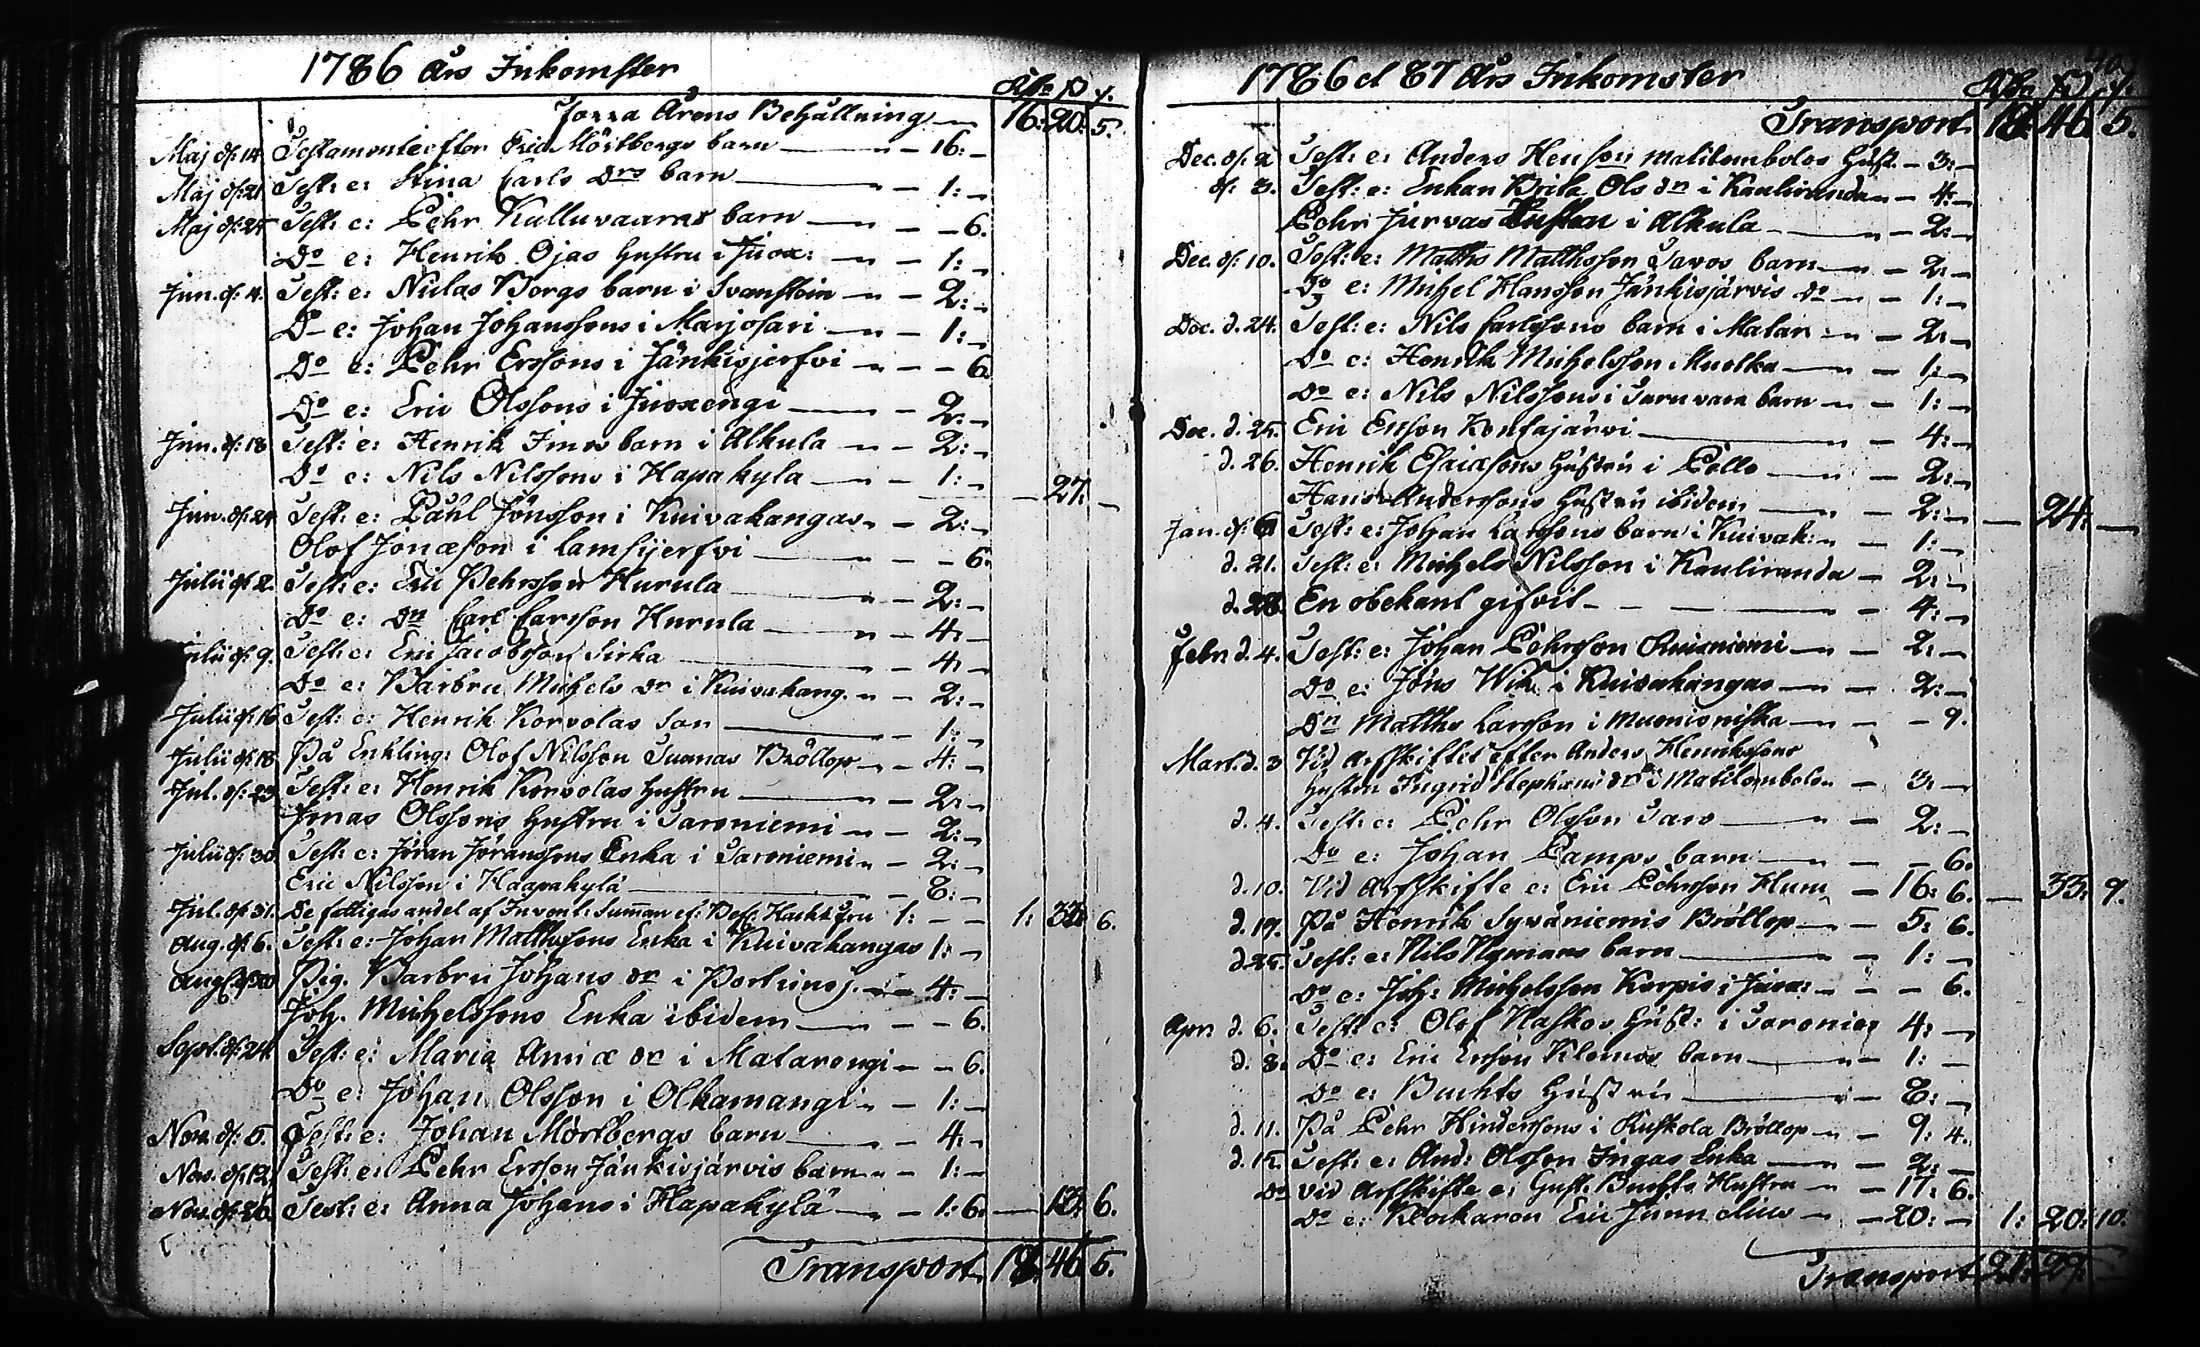 1786 Års Inkomster
Rdr ß r.
Förra Årens Behållning 16: 20: 5.
Maj d: 14. Testamente efter Eric Mörtbergs barn — 16: —
Maj d: 21. Test: e: Stina Carls Drs barn — 1: —
Maj d: 25 Test: e: Pehr Kulluvaaras barn — 6.
Do e: Henrik Ojas hustru i Juox: — 1: —
Jun. d: 4. Test: e: Niclas Borgs barn i Svanstein — 2: —
Do e: Johan Johanssons i Marjosari — 1: —
Do e: Pehr Erssons i Jänkisjerfvi — 6.
Do e: Eric Olssons i Juoxengi — 2: —
Jun. d: 18 Test: e: Henrik Finos barn i Alkula — 2: —
Do e: Nils Nilssons i Hapakyla — 1: — — 27. —
Jun. d: 24 Test: e: Påhl Jönsson i Kuivakangas — 2: —
Olof Jonæson i Lamsijerfvi — 6.
Julii d: 2. Test: e: Eric Pehrsson Hurula — 2: —
Do e: Dn Carl Carlsson Hurula — 4: —
Julii d: 9. Test: e: Eric Jacobsson Sirka — 4: —
Do e: Barbru Michels dr i Kuivakang. — 2: —
Julii d: 16 Test: e: Henrik Korvolas son — 1: —
Julii d: 18 På Enkling: Olof Nilsson Tuomas Bröllop — 4: —
Jul. d: 23 Test: e: Henrik Korvolas hustru — 2: —
Jonas Olssons hustru i Taroniemi — 2: —
Julii d: 30 Test: e: Jöran Jöranssons Enka i Taroniemi — 2: —
Eric Nilsson i Haapakylä — 8: —
Jul. d: 31. De fattigas andel af Invent: Summan ef: Bef: Hackzfru 1: — — 1: 33: 6.
Aug. d: 6. Test: e: Johan Matthssons Enka i Kuivakangas 1: —
Aug. d: 20 Pig. Barbru Johans dr i Portimoj. — 4: —
Joh. Michelssons Enka ibidem — 6.
Sept. d: 24. Test: e: Maria Annæ dr i Matarengi — 6.
Do e: Johan Olsson i Olkamangi — 1: —
Nov. d: 5. Test: e: Johan Mörtbergs barn — 4: —
Nov. d: 12. Test: e: Pehr Ersson Jänkisjärvis barn — 1: —
Nov. d: 26. Test: e: Anna Johans i Hapakylä — 1: 6. — 13: 6.
Transport 18: 46. 5.
1786 et 87 Års Inkomster
Rdr ß r.
Transport 18: 46. 5.
Dec. d: 2 Test: e: Anders Henson Matilombolos Hust. — 3: —
d: 3. Test: e: Enkan Brita Ols dr i Kauliranda — 4: —
Pehr Jurvas Hustru i Alkula — 2: —
Dec. d: 10. Test: e: Matths Matthsson Tavos barn — 2: —
Do e: Michel Hansson Jänkisjärvis do — 1: —
Dec. d. 24. Test: e: Nils Carlssons barn i Matar — 2: —
Do e: Henrik Michelsson Muotka — 1: —
Do e: Nils Nilssons i Taruvara barn — 1: —
Dec. d. 25. Eric Ersson Konfajärvi — 4: —
d. 26. Henrik Esaiæsons Hustru i Pello — 2: —
Hans Anderssons Hustru ibidem — 2: — — 24. —
Jan. d: 6 Test: e: Johan Larssons barn i Kuivak: — 1: —
d. 21. Test: e: Michels Nilsson i Kauliranda — 2: —
d. 28. En obekant gifvit — 4: —
Febr: d. 4. Test: e: Johan Pehrsson Ruisniemi — 2: —
Do e: Jöns Wik i Kuivakangas — 2: —
Dn Matths Larsson i Muonioniska — 9.
Mart. d. 3 Vid Arfskiftet efter Anders Henrikssons
Hustru Ingrid Stephans dr i Matilombolo — 3: —
d. 4. Test: e: Pehr Olsson Taro — 2: —
Do e: Johan Pamps barn — 6.
d. 10. Vid Arfskifte e: Eric Pehrsson Hum — 16: 6. — 33: 9.
d. 19. På Henrik Sywäniemis Bröllop — 5: 6.
d. 25. Test: e: Nils Nymans barn — 1: —
Do e: Joh: Michelsson Korpis i Juox: — 6.
Apr: d. 6. Test: e: Olof Naskos Hust: i Taronie 4: —
d. 8. Do e: Eric Ersson Klemos barn — 1: —
Do e: Buchts Hustru — 8: —
d. 11. På Pehr Hinderssons i Ruskola Bröllop — 9: 4.
d. 15. Test: e: And: Olsson Ingas Enka — 2: —
Do Vid Arfskifte e: Gust: Buchts Hustru — 17: 6.
Do e: Klockaren Eric Junnelius — 20: — 1: 20: 10.
Transport 21: 29: —